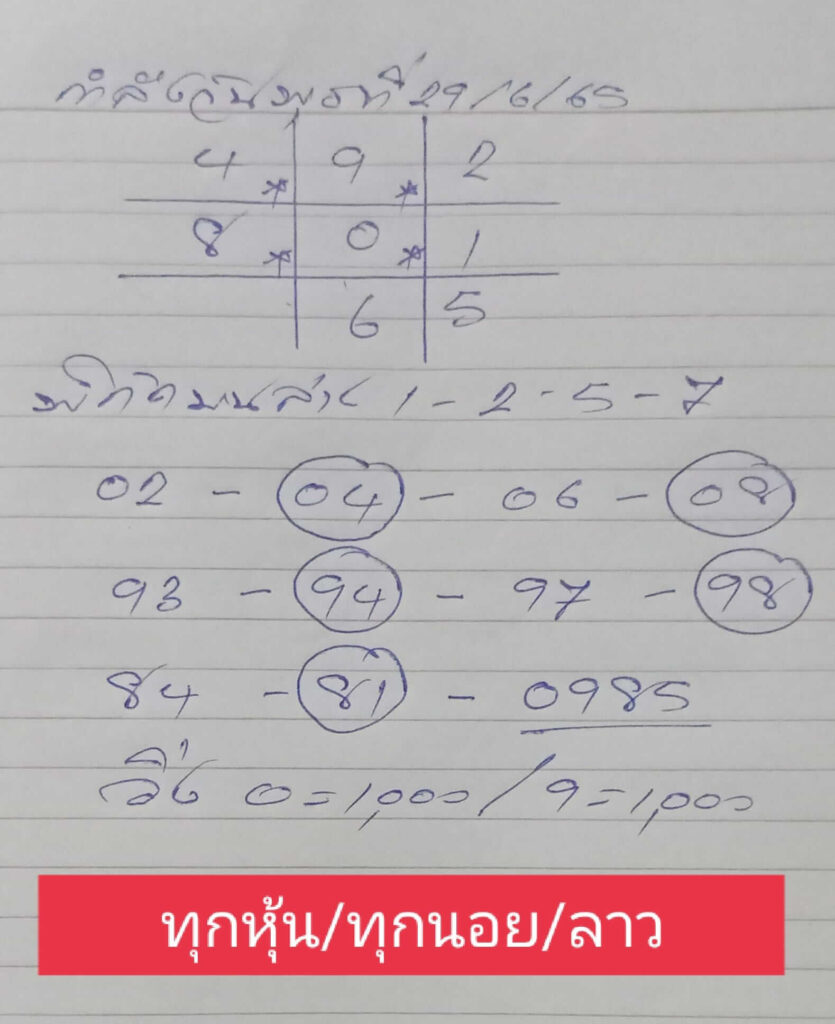 กำลังวันพุธที่ 29/6/65
4 * 9 * 2
8 * 0 * 1
6 5
พิกัดบนล่าง 1 - 2 - 5 - 7
02 - 04 - 06 - 08
93 - 94 - 97 - 98
84 - 81 - 0985
วิ่ง 0 = 1,000 / 9 = 1,000
ทุกหุ้น/ทุกนอย/ลาว